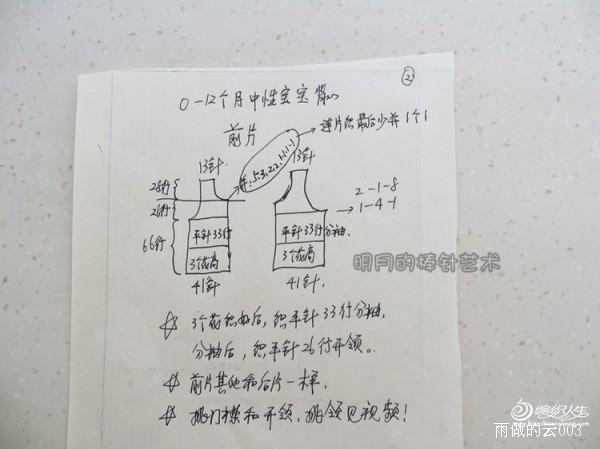 ②
0-12个月中性宝宝背心
前片
连片织最后少并1个1
平.5.3.2.2.1.1.1.1
13针
13针
28行
26行
66行
2-1-8
1-4-1
平针33行
平针33行分袖.
3个花高
3个花高
41针
41针.
明月的棒针艺术
☆ 3个花织好后，织平针33行分袖.
分袖后，织平针26行开领。
☆ 前片其他和后片一样.
☆ 挑门襟和开领.挑领见视频！
编织人生
雨做的云003